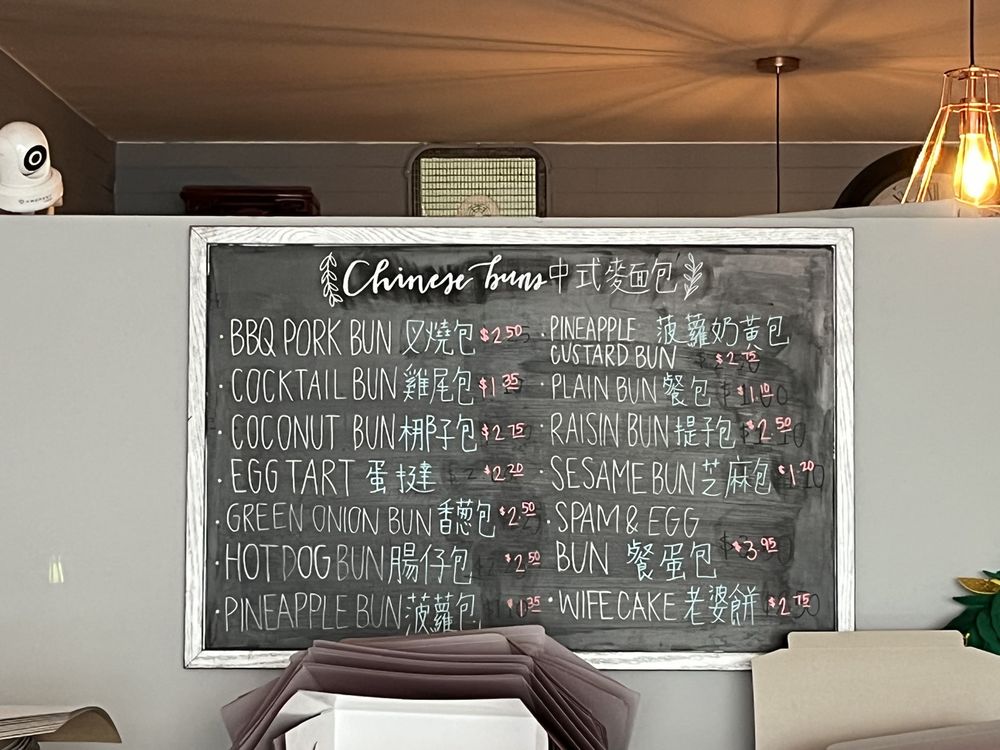 Chinese buns 中式麵包
· BBQ PORK BUN 叉燒包 $2.50
· COCKTAIL BUN 雞尾包 $1.35
· COCONUT BUN 椰子包 $2.75
· EGG TART 蛋撻 $2.20
· GREEN ONION BUN 香葱包 $2.50
· HOT DOG BUN 腸仔包 $2.50
· PINEAPPLE BUN 菠蘿包 $1.35
· PINEAPPLE 菠蘿奶黃包
CUSTARD BUN $2.75
· PLAIN BUN 餐包 $1.10
· RAISIN BUN 提子包 $2.50
· SESAME BUN 芝麻包 $1.20
· SPAM & EGG
BUN 餐蛋包 $3.95
· WIFE CAKE 老婆餅 $2.75